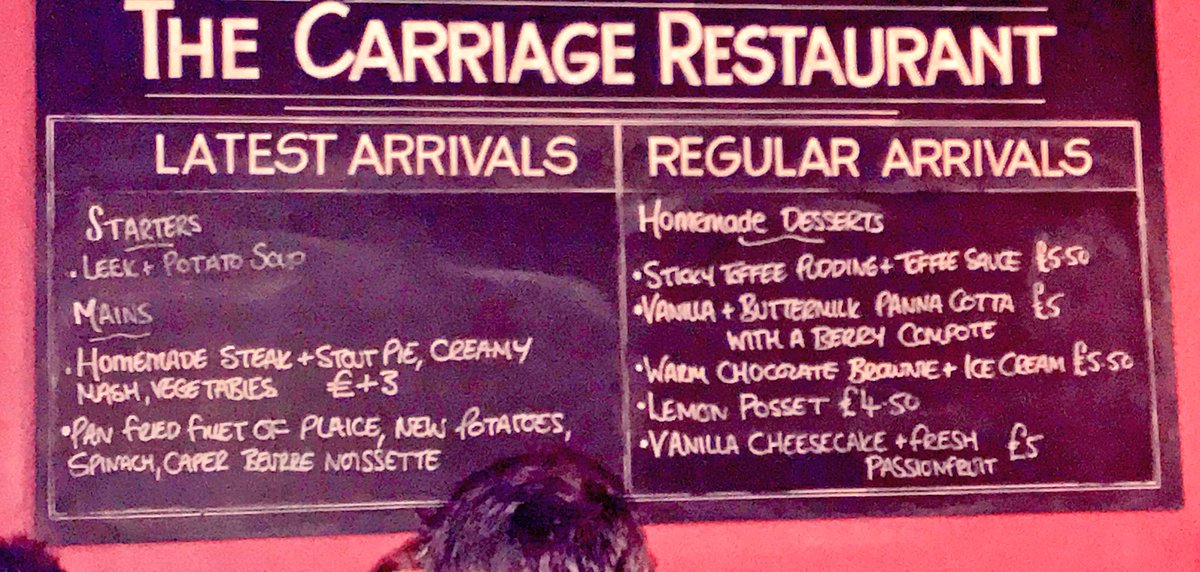 THE CARRIAGE RESTAURANT
LATEST ARRIVALS
STARTERS
• LEEK + POTATO SOUP
MAINS
• HOMEMADE STEAK + STOUT PIE, CREAMY
MASH, VEGETABLES €+3
• PAN FRIED FILLET OF PLAICE, NEW POTATOES,
SPINACH, CAPER BEURRE NOISSETTE
REGULAR ARRIVALS
Homemade DESSERTS
• STICKY TOFFEE PUDDING + TOFFEE SAUCE £5.50
• VANILLA + BUTTERMILK PANNA COTTA £5
WITH A BERRY COMPOTE
• WARM CHOCOLATE BROWNIE + ICE CREAM £5.50
• LEMON POSSET £4.50
• VANILLA CHEESECAKE + FRESH £5
PASSIONFRUIT